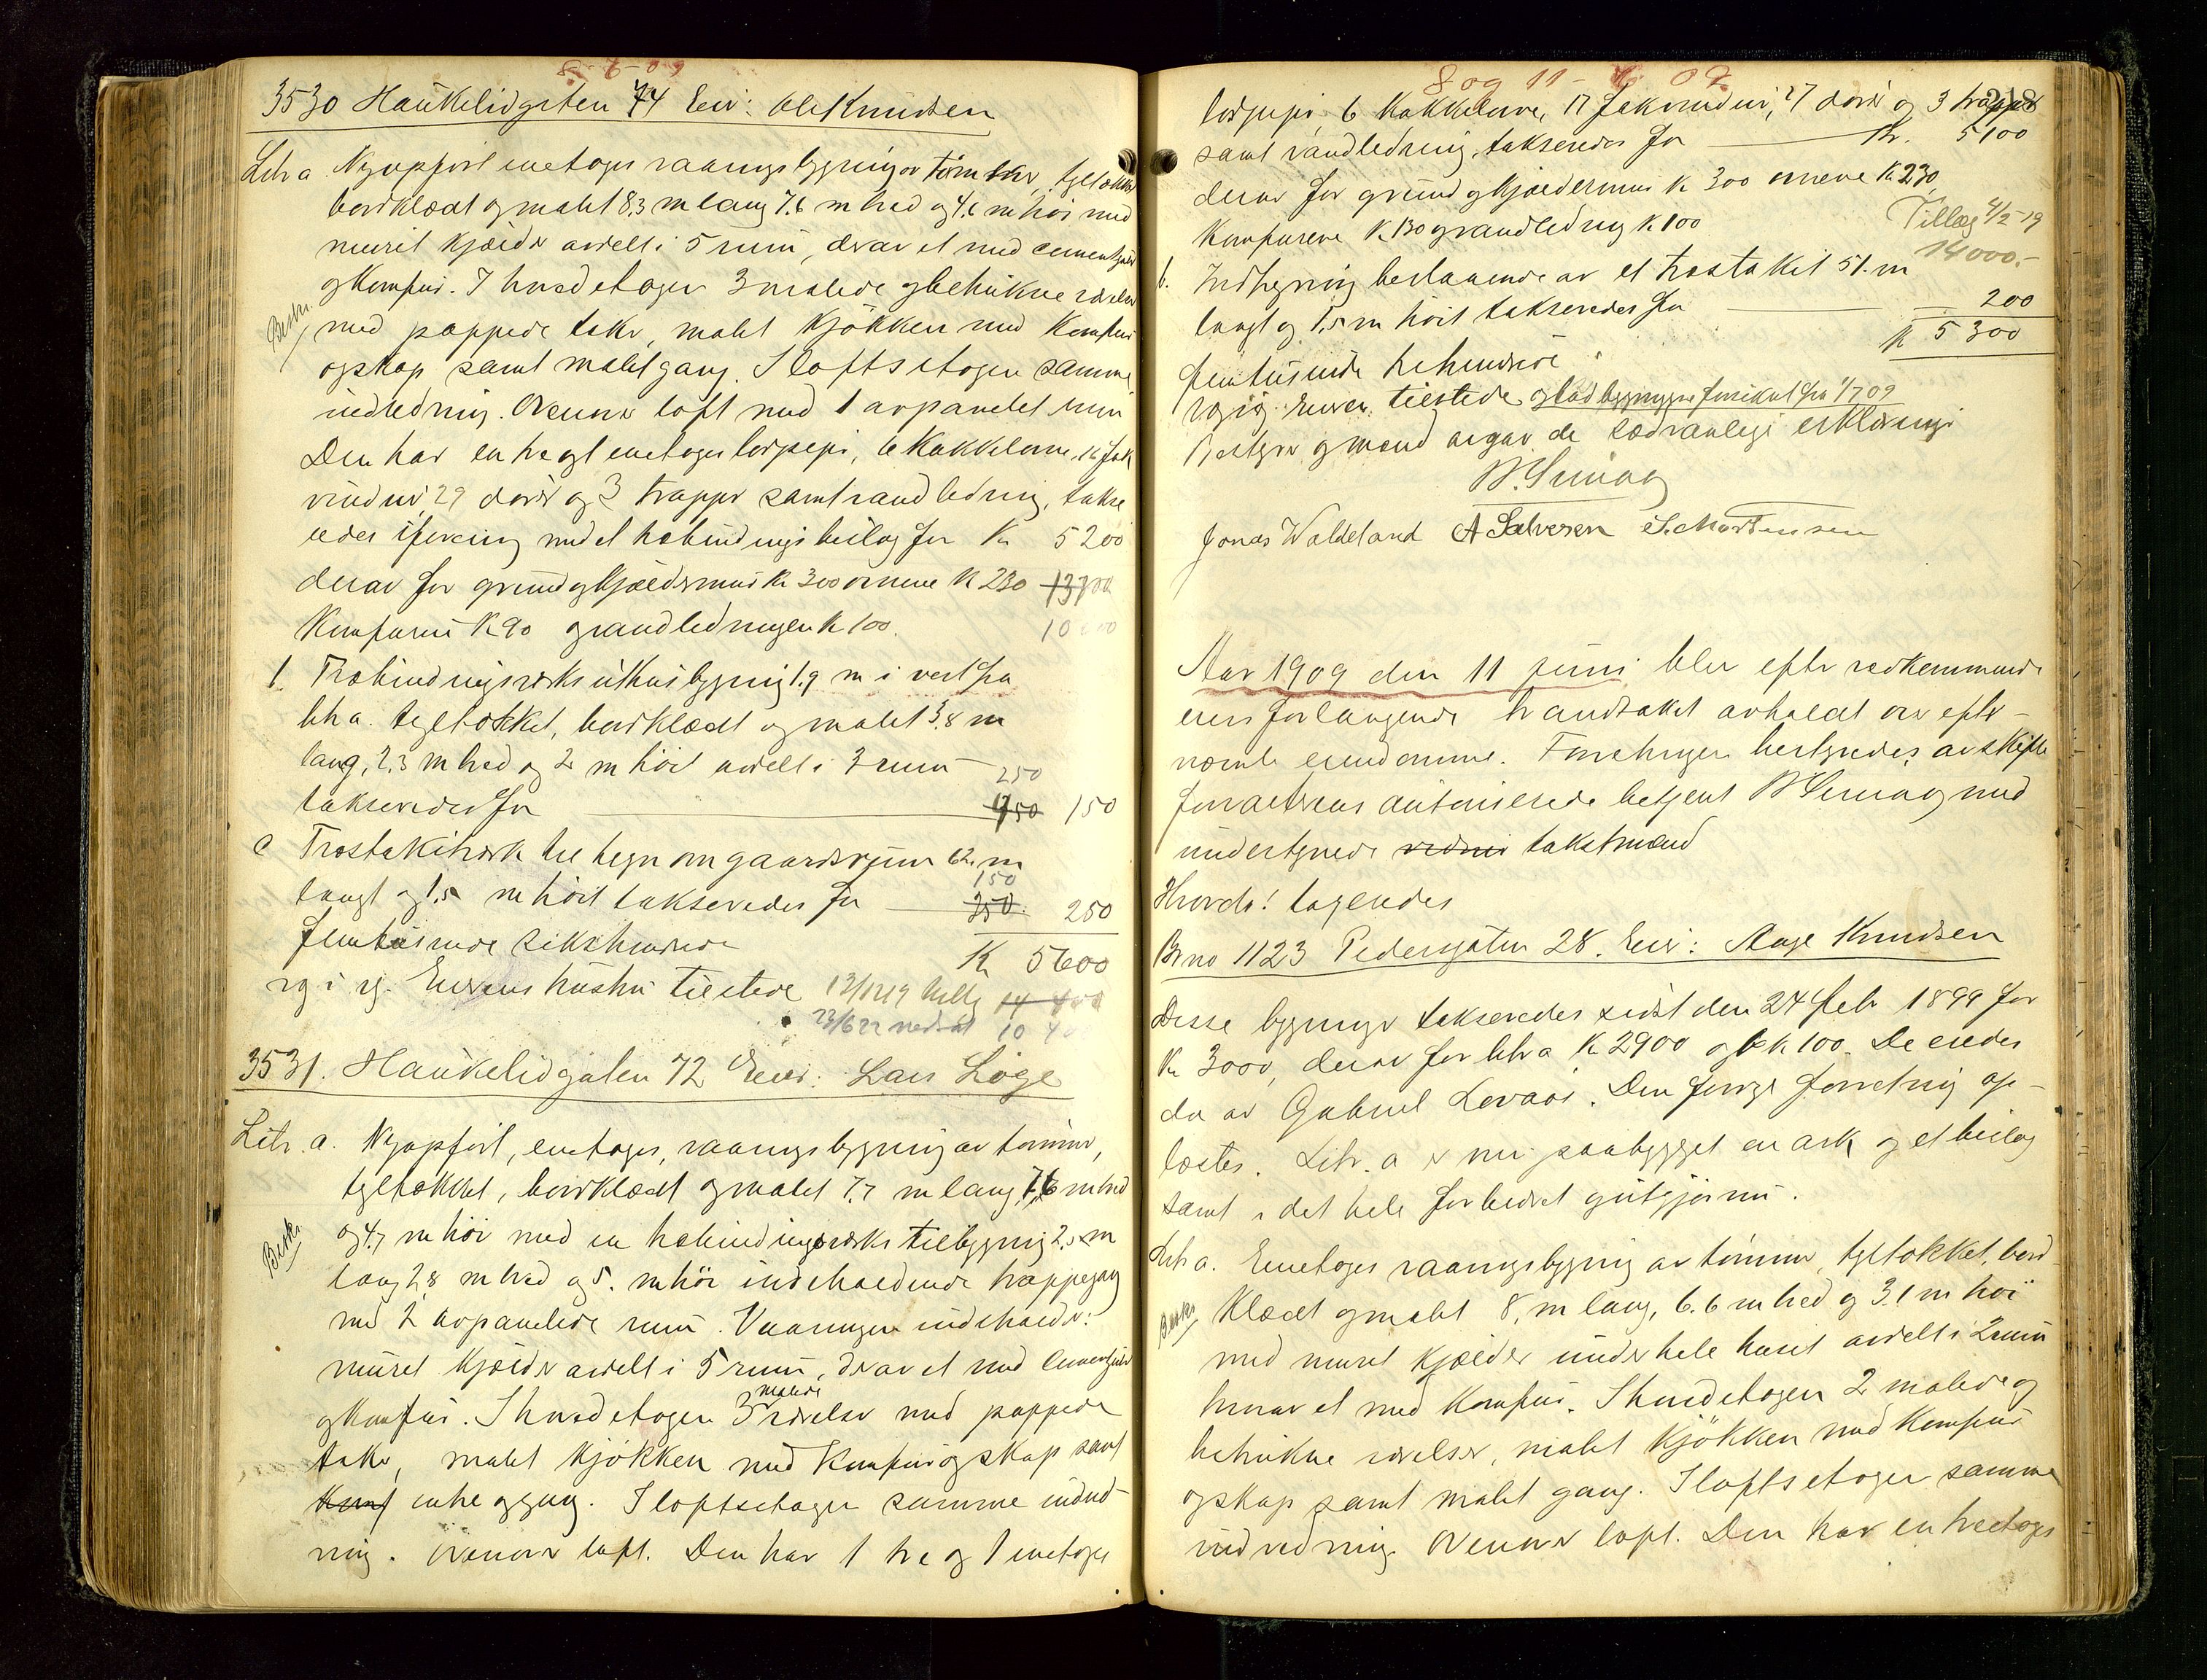 8-6-09
3530 Haukelidgaten 74 Eier: Ole Knudsen
Litr a. Nyopført enetages vaaningsbygning av tømmer, tegltækket
bordklædt og malet 8.3 m lang 7.6 m bred og 4.6 m høi med
muret kjælder avdelt i 5 rum, derav et med cementgulv
Beskr.
og komfur. I hovedetagen 3 malede og betrukne værelser
med pappede taker, malet kjøkken med komfur
og skap samt malet gang. I loftsetagen samme
indredning. Ovenover loft med 1 avpanelet rum
Den har en tre og 1 enetages torpipe, 6 kakkelovne, 16 fak
vinduer, 29 dører og 3 trapper samt vandledning, takse
redes iberegning med et trebindings beslag for Kr 5200
derav for grund og kjældermur Kr 300 ovnene K 230 13700
Komfurene K 90 og vandledningen K 100. 10000
b Træbindingsverks uthusbygning 1.9 m i vest fra
litr a. tegltækket, bordklædt og malet 3.8 m
lang, 2.3 m bred og 2 m høit avdelt i 3 rum 250
takseredes for 150 150
c Træstakitverk til hegn om gaardsrum 62. m
150
langt og 1.5 m høit takseredes for 250. 250
femtusinde sekshundrede Kr 5600
rg i rg. Eierens hustru tilstede 13/1219 tillæg 14 400
23/6 22 nedsat 10 400
3531. Haukelidgaten 72 Eier: Lars Löge
Litr. a. Nyopført, enetages, vaaningsbygning av tømmer,
tegltækket, bordklædt og malet 7.7 m lang 7.6 m bred
Beskr.
og 4.7 m høi med en træbindingsverks tilbygning 2.5 m
lang 2.8 m bred og 5. m høi indeholdende trappegang
med 2 avpanelede rum. Vaaningen indeholder:
muret kjælder avdelt i 5 rum, derav et med cementgulv
malede
og komfur. I hovedetagen 3 værelser med pappede
taker, malet kjøkken med komfur og skap samt
Komf malet gang. I loftsetagen samme indred-
ning. Ovenover loft. Den har 1 tre og 1 enetages
8 og 11-6 09
218
torpipe, 6 kakkelovne, 17 fakvinduer, 27 dører og 3 trapper
samt vandledning, takseredes for Kr. 5100
derav for grund og kjældermur K 300 ovnene Kr 230
Komfurene K 130 og vandledning K 100
Tillæg 4/2-19
14000.-
b. Indhegning bestaaende av et træstakit 51. m
langt og 1.5 m høit takseredes for 200
K 5300
femtusinde trehundrede
rg i rg. Eieren tilstede og lod bygningerne forsikret fra 1/7 09
Bestyrer og mænd avgav de sædvanlige erklæringer
Jonas Waldeland A Salvesen S. Mortensen
Aar 1909 den 11 juni blev efter vedkommende
eiers forlangende brandtakst avholdt over efter-
nævnte eiendomme. Forretningen bestyredes av skifte
forvalterens autoriserede betjent med
undertegnede takstmænd
Hvorda! tagendes
Br no 1123 Pedersgaten 28. Eier: Aage Knudsen
Disse bygninger takseredes sidst den 24 febr 1899 for
Kr 3000, derav for litr a K 2900 og b K 100. De eiedes
da av Gabriel Levaas. Den forrige forretning op-
læstes. Litr. a er nu paabygget en ark og et beslag
samt i det hele forbedret
Litr a. Enetages vaaningsbygning av tømmer, tegltækket, bord-
Beskr.
klædt og malet 8. m lang, 6.6 m bred og 3.1 m høi
med muret kjælder under hele huset avdelt i 2 rum
hvorav et med komfur. I hovedetagen 2 malede og
betrukne værelser, malet kjøkken med komfur
og skap samt malet gang. I loftsetagen samme
indredning. Ovenover loft. Den har en treetages